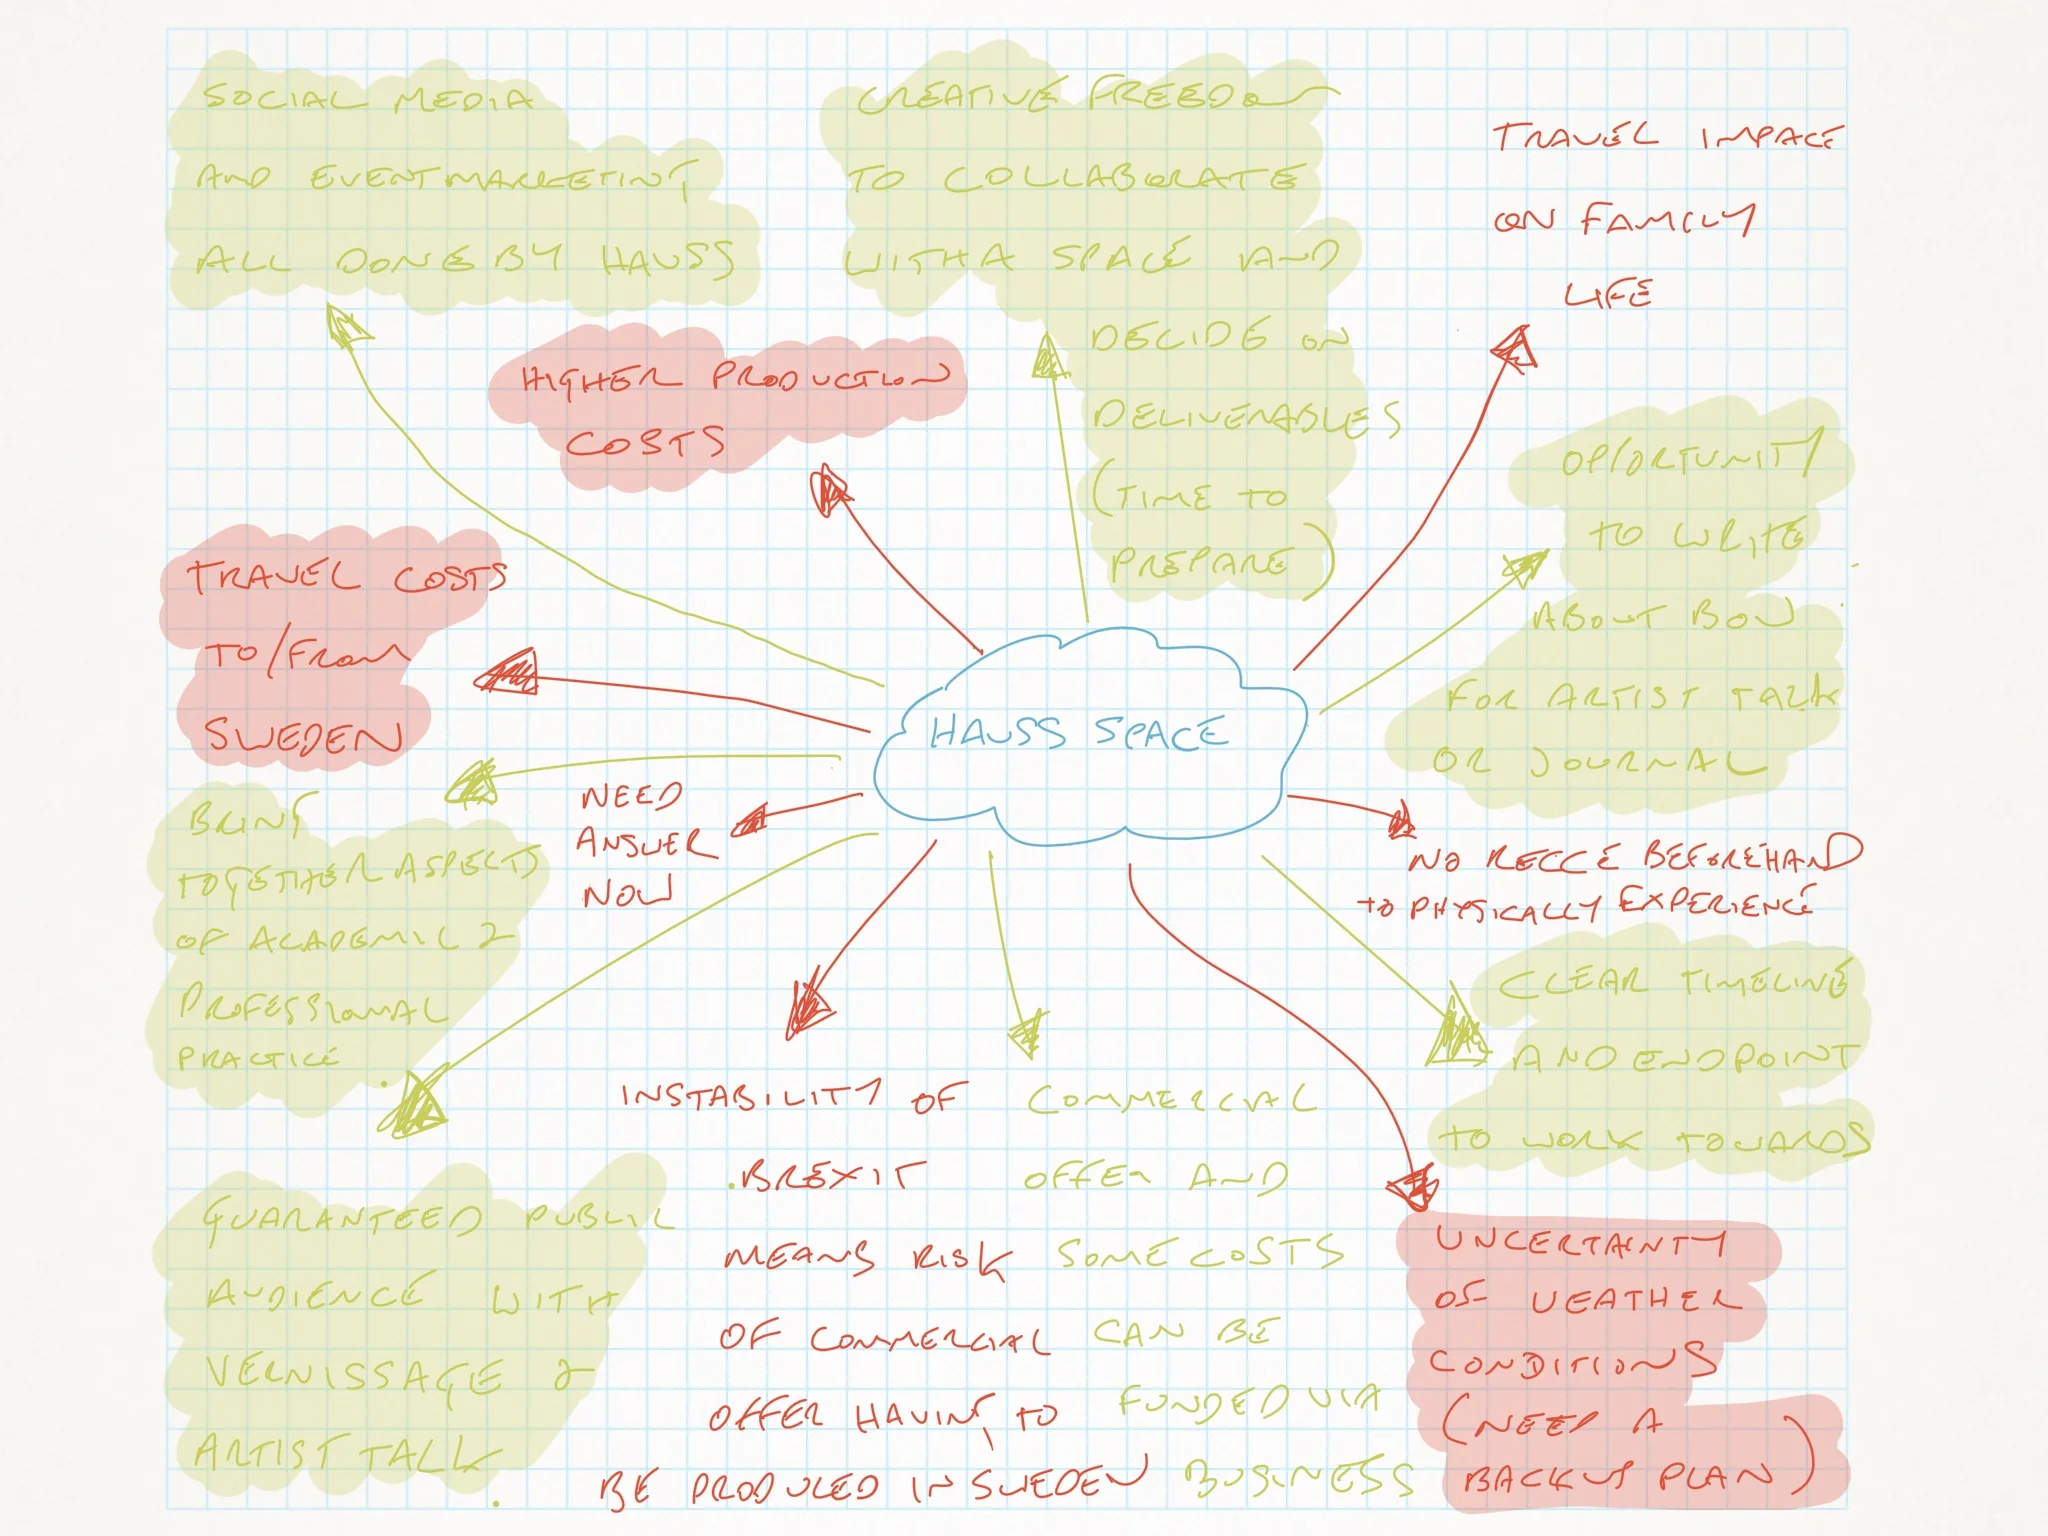 SOCIAL MEDIA
AND EVENT MARKETING
ALL DONE BY HAUSS
CREATIVE FREEDOM
TO COLLABORATE
WITH A SPACE AND
DECIDE ON
DELIVERABLES
(TIME TO
PREPARE)
TRAVEL IMPACE
ON FAMILY
LIFE
HIGHER PRODUCTION
COSTS
OPPORTUNITY
TO WRITE
ABOUT BOW
FOR ARTIST TALK
OR JOURNAL
TRAVEL COSTS
TO/FROM
SWEDEN
HAUSS SPACE
BRING
TOGETHER ASPECTS
OF ACADEMIC &
PROFESSIONAL
PRACTICE
NEED
ANSWER
NOW
NO RECCE BEFOREHAND
TO PHYSICALLY EXPERIENCE
CLEAR TIMELINE
AND ENDPOINT
TO WORK TOWARDS
GUARANTEED PUBLIC
AUDIENCE WITH
VERNISSAGE &
ARTIST TALK
INSTABILITY OF
BREXIT
MEANS RISK
OF COMMERCIAL
OFFER HAVING TO
BE PRODUCED IN SWEDEN
COMMERCIAL
OFFER AND
SOME COSTS
CAN BE
FUNDED VIA
BUSINESS
UNCERTAINTY
OF WEATHER
CONDITIONS
(NEED A
BACKUP PLAN)